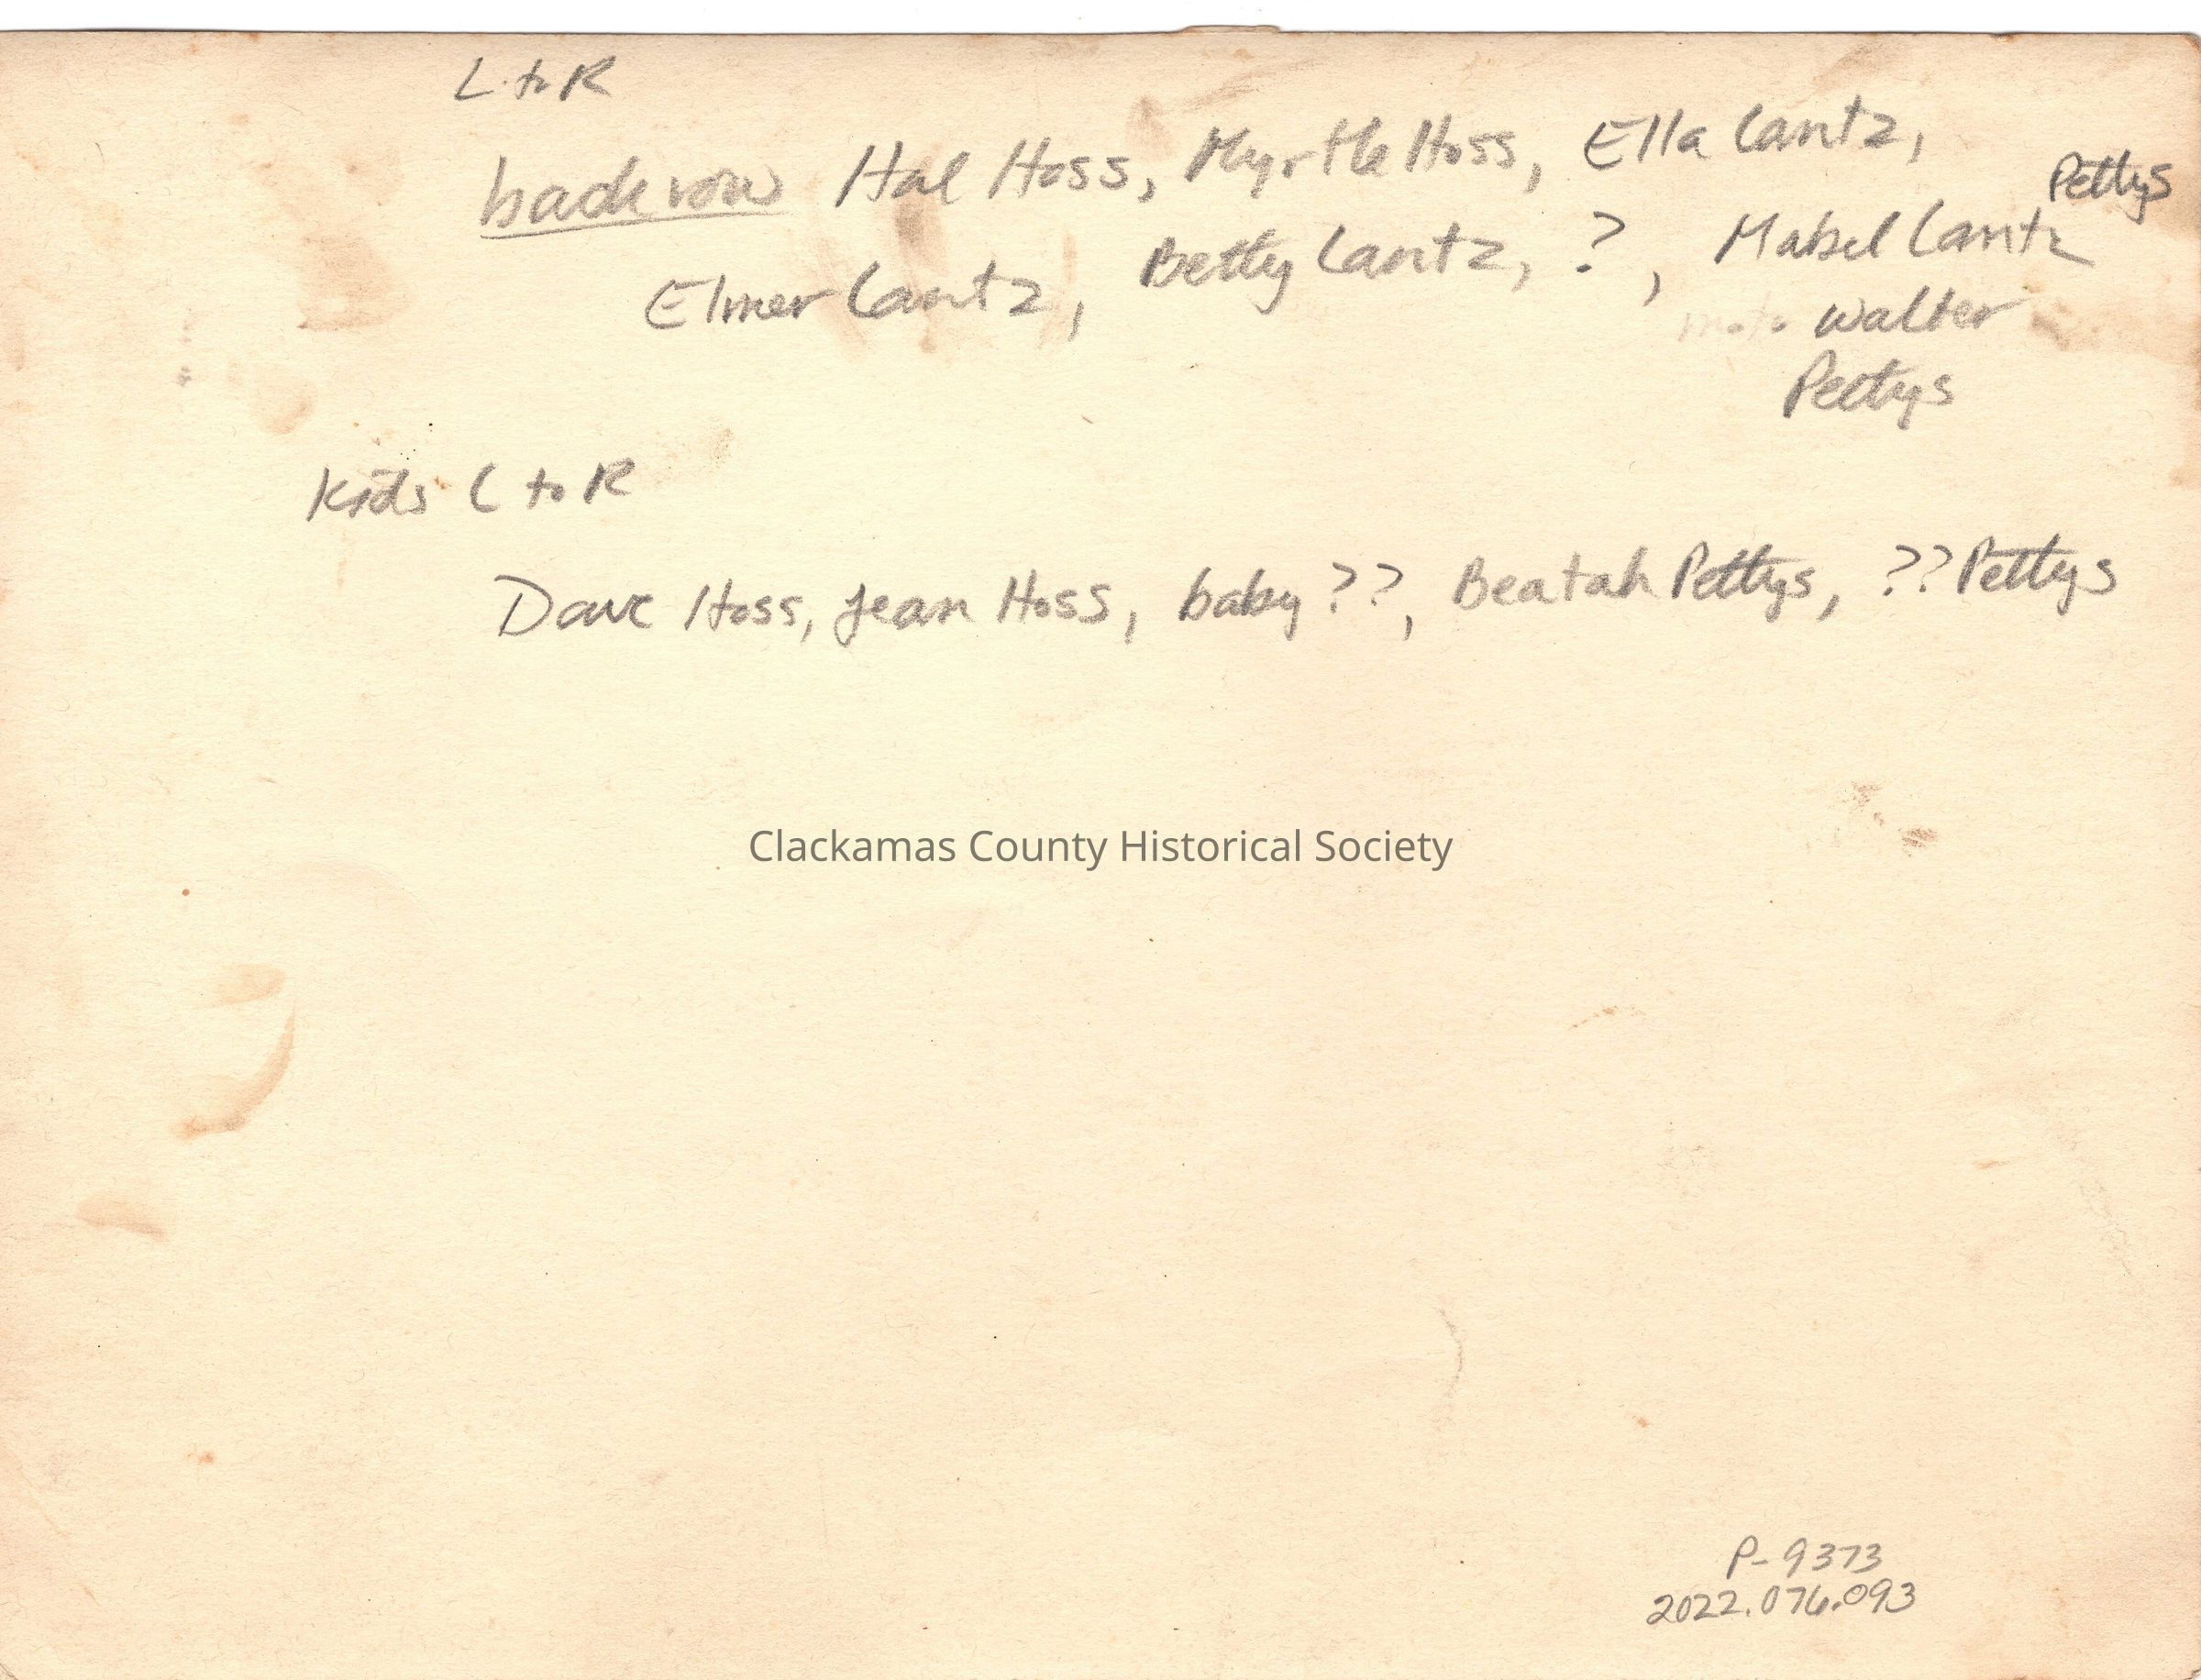 L to R
back row Hal Hoss, Myrtle Hoss, Ella Lantz,
Elmer Lantz, Betty Lantz, ?, Mabel Lantz Pettys
Walter
Pettys
Kids L to R
Dave Hoss, Jean Hoss, baby ??, Beatah Pettys, ?? Pettys
Clackamas County Historical Society
P-9373
2022.076.093